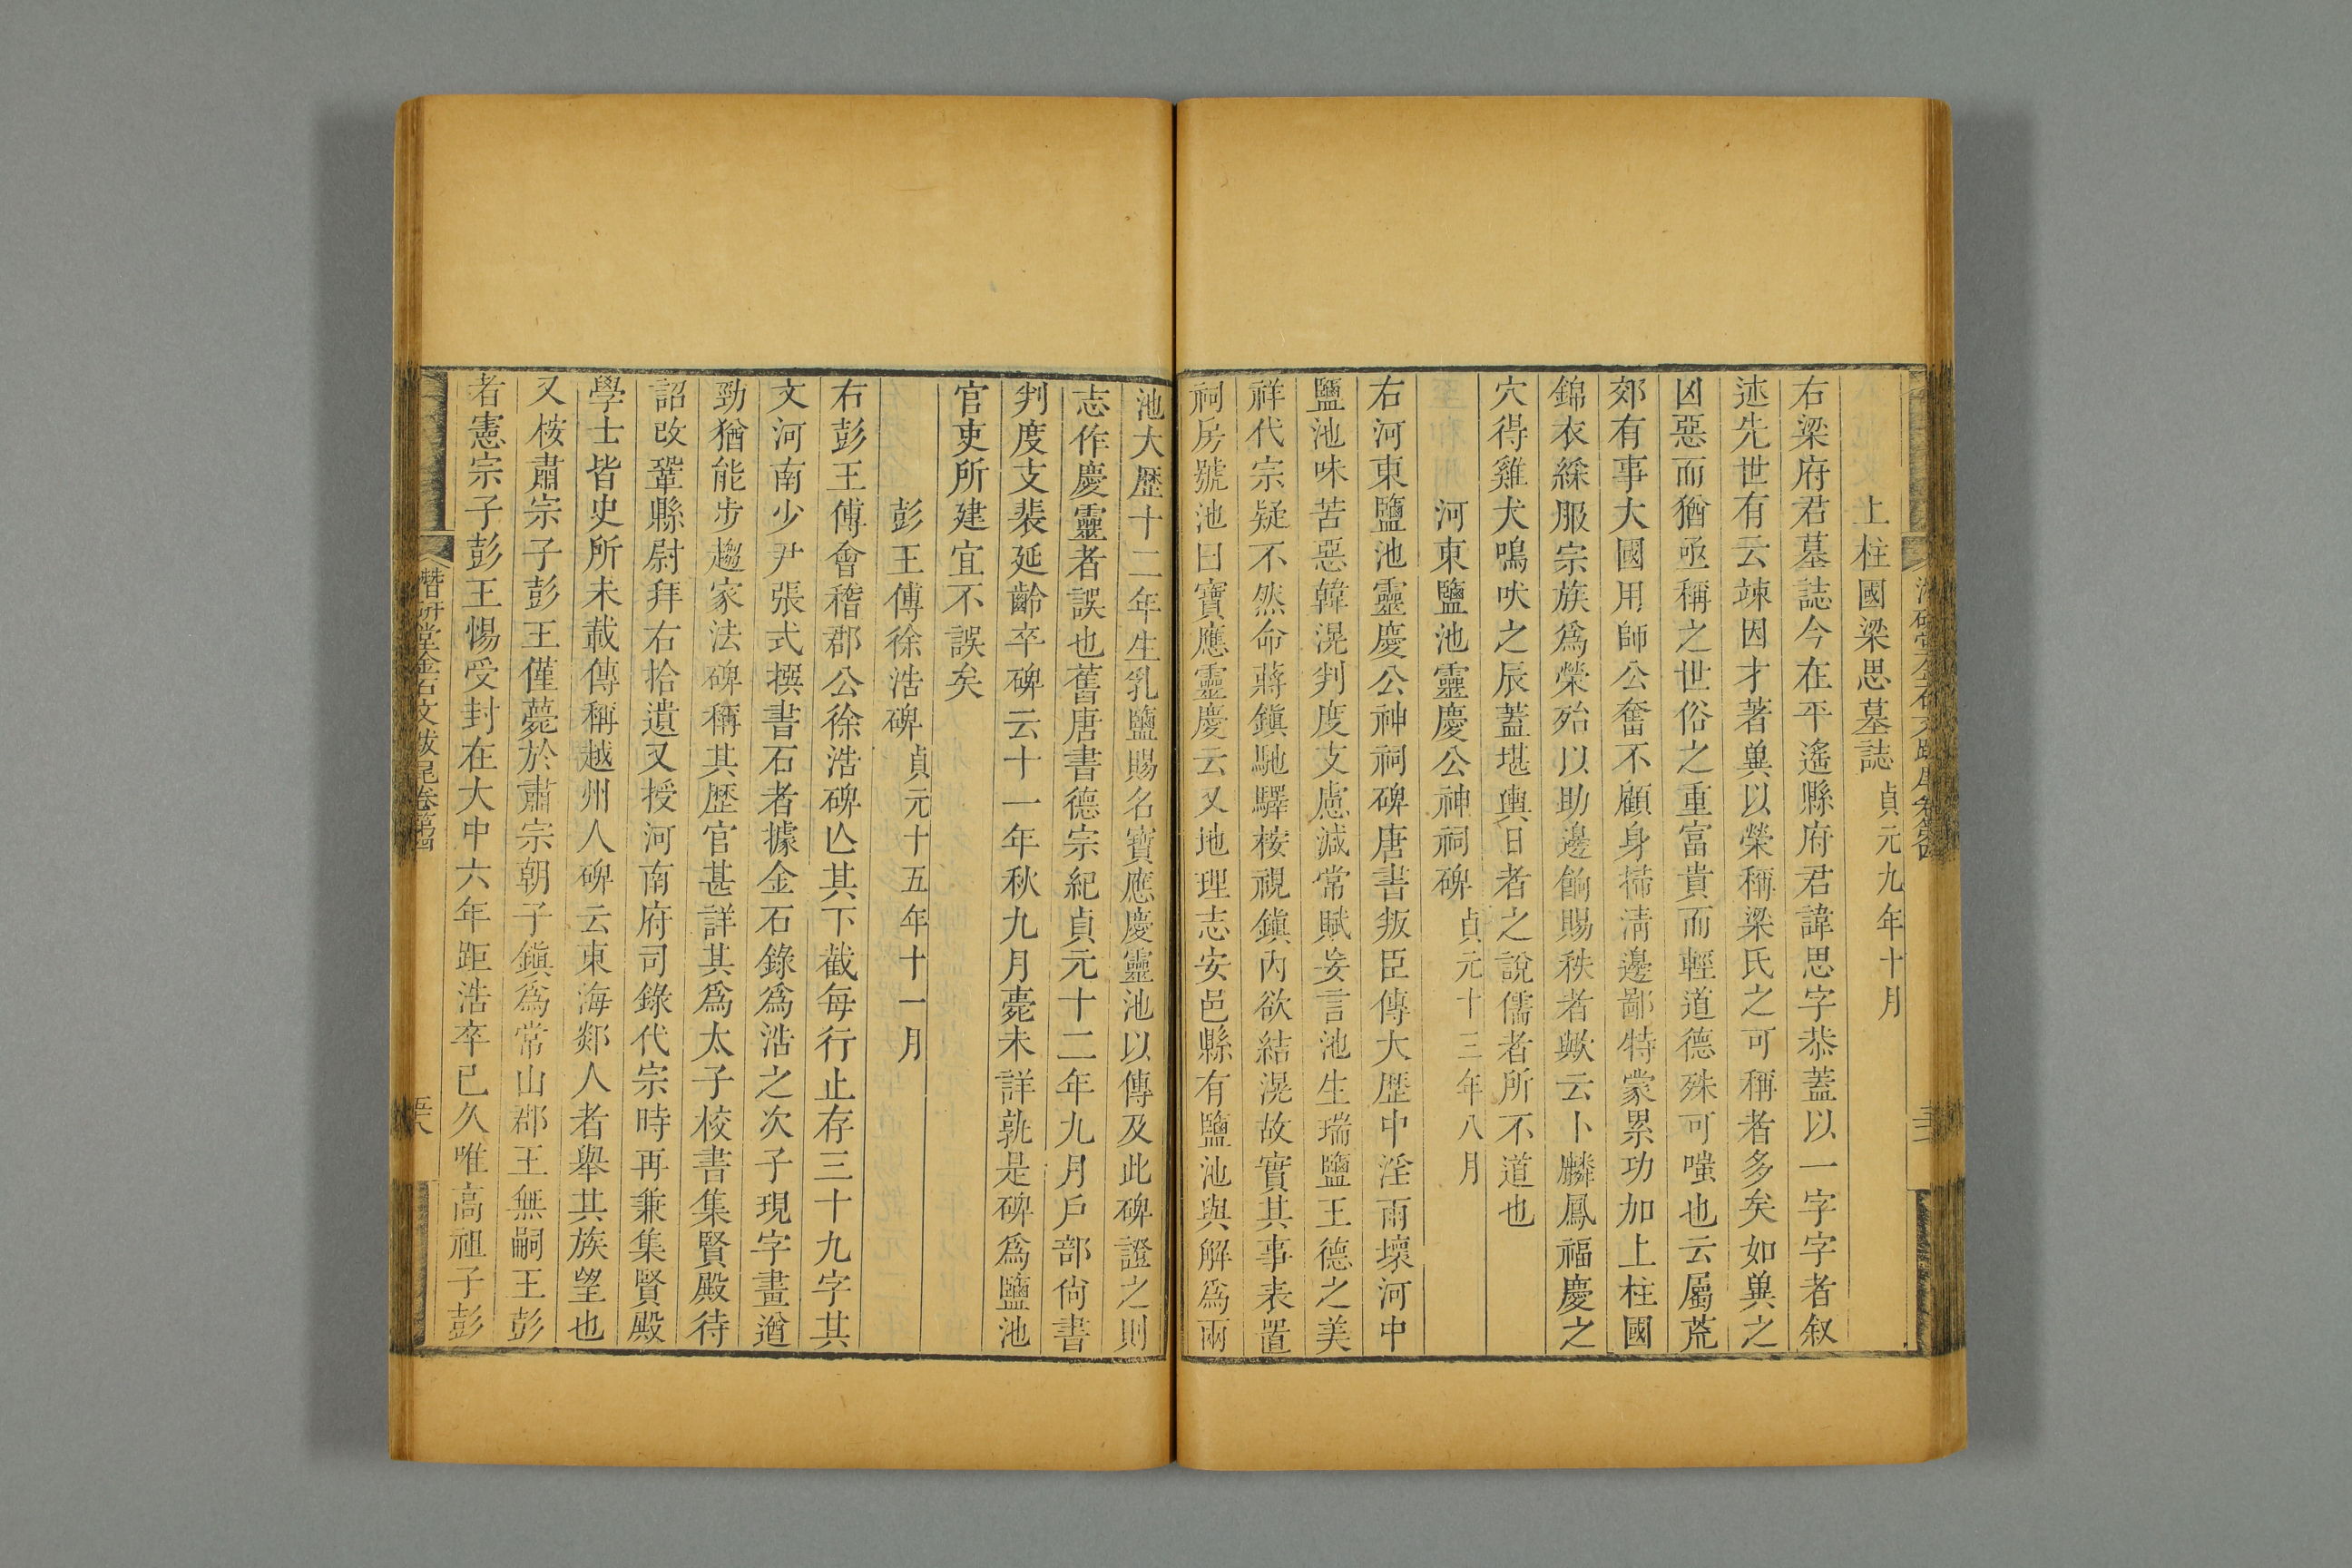 上柱國梁思墓誌 貞元九年十月
右梁府君墓誌今在平遙縣府君諱思字恭蓋以一字字者叙
述先世有云竦因才著兾以榮稱梁氏之可稱者多矣如兾之
凶惡而猶亟稱之世俗之重富貴而輕道德殊可嗤也云屬荒
郊有事大國用師公奮不顧身掃清邊鄙特蒙累功加上柱國
錦衣綵服宗族爲榮殆以助邊餉賜秩者歟云卜麟鳳福慶之
穴得雞犬鳴吠之辰蓋堪輿日者之說儒者所不道也
河東鹽池靈慶公神祠碑 貞元十三年八月
右河東鹽池靈慶公神祠碑唐書叛臣傳大歷中淫雨壞河中
鹽池味苦惡韓滉判度支慮減常賦妄言池生瑞鹽王德之美
祥代宗疑不然命蔣鎮馳驛按視鎮內欲結滉故實其事表置
祠房號池曰寶應靈慶云又地理志安邑縣有鹽池與解爲兩
池大歷十二年生乳鹽賜名寶應慶靈池以傳及此碑證之則
志作慶靈者誤也舊唐書德宗紀貞元十二年九月戶部尙書
判度支裴延齡卒碑云十一年秋九月薨未詳孰是碑爲鹽池
官吏所建宜不誤矣
彭王傅徐浩碑 貞元十五年十一月
右彭王傅會稽郡公徐浩碑亾其下截每行止存三十九字其
文河南少尹張式撰書石者據金石錄爲浩之次子現字畫遒
勁猶能步趨家法碑稱其歷官甚詳其爲太子校書集賢殿待
詔改鞏縣尉拜右拾遺又授河南府司錄代宗時再兼集賢殿
學士皆史所未載傳稱越州人碑云東海郯人者舉其族望也
又桉肅宗子彭王僅薨於肅宗朝子鎮爲常山郡王無嗣王彭
者憲宗子彭王惕受封在大中六年距浩卒已久唯高祖子彭
潛研堂金石文跋尾卷第四